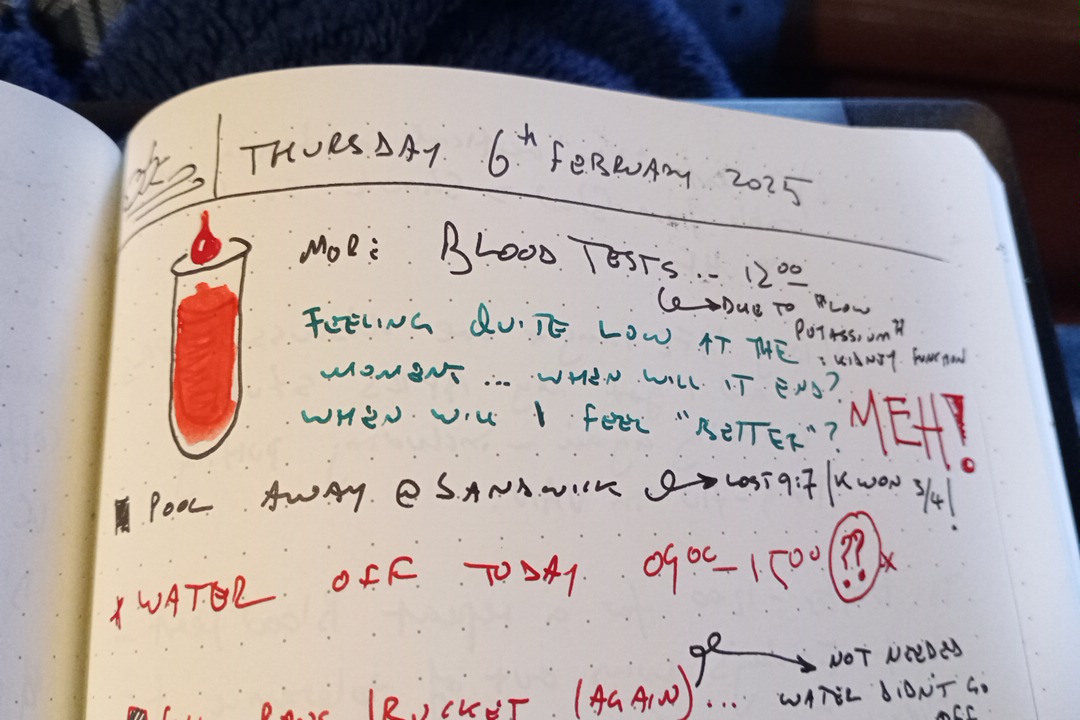 THURSDAY 6th FEBRUARY 2025
MORE BLOOD TESTS .. 12 00
DUE TO "LOW
POTASSIUM"
: KIDNEY FUNCTION
FEELING QUITE LOW AT THE
MOMENT ... WHEN WILL IT END?
WHEN WILL I FEEL "BETTER"?
MEH!
POOL AWAY @ SANDWICK
LOST 9:7 | K WON 3/4!
x WATER OFF TODAY 09 00 - 15 00 ?? x
NOT NEEDED
WATER DIDN'T GO
OFF
BUCKET (AGAIN) ...